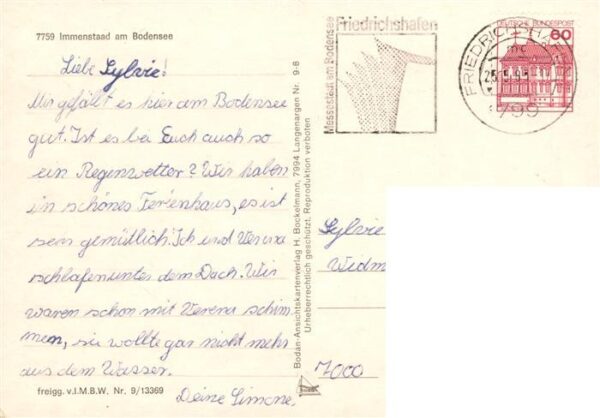 7759 Immenstaad am Bodensee
Liebe Sylvie!
Mir gefällt es hier am Bodensee
gut. Ist es bei Euch auch so
ein Regenwetter? Wir haben
ein schönes Ferienhaus, es ist
sehr gemütlich. Ich und Verena
schlafen unter dem Dach. Wir
waren schon mit Verena schim
men, sie wollte gar nicht mehr
aus dem Wasser.
Deine Simone.
freigg. v.I.M.B.W. Nr. 9/13369
Bodan-Ansichtskartenverlag H. Bockelmann, 7994 Langenargen Nr. 9-8
Urheberrechtlich geschützt. Reproduktion verboten
Friedrichshafen
Messestadt am Bodensee
FRIEDRICHSHAFEN
7799
DEUTSCHE BUNDESPOST
60
Sylvie
Widm
7000